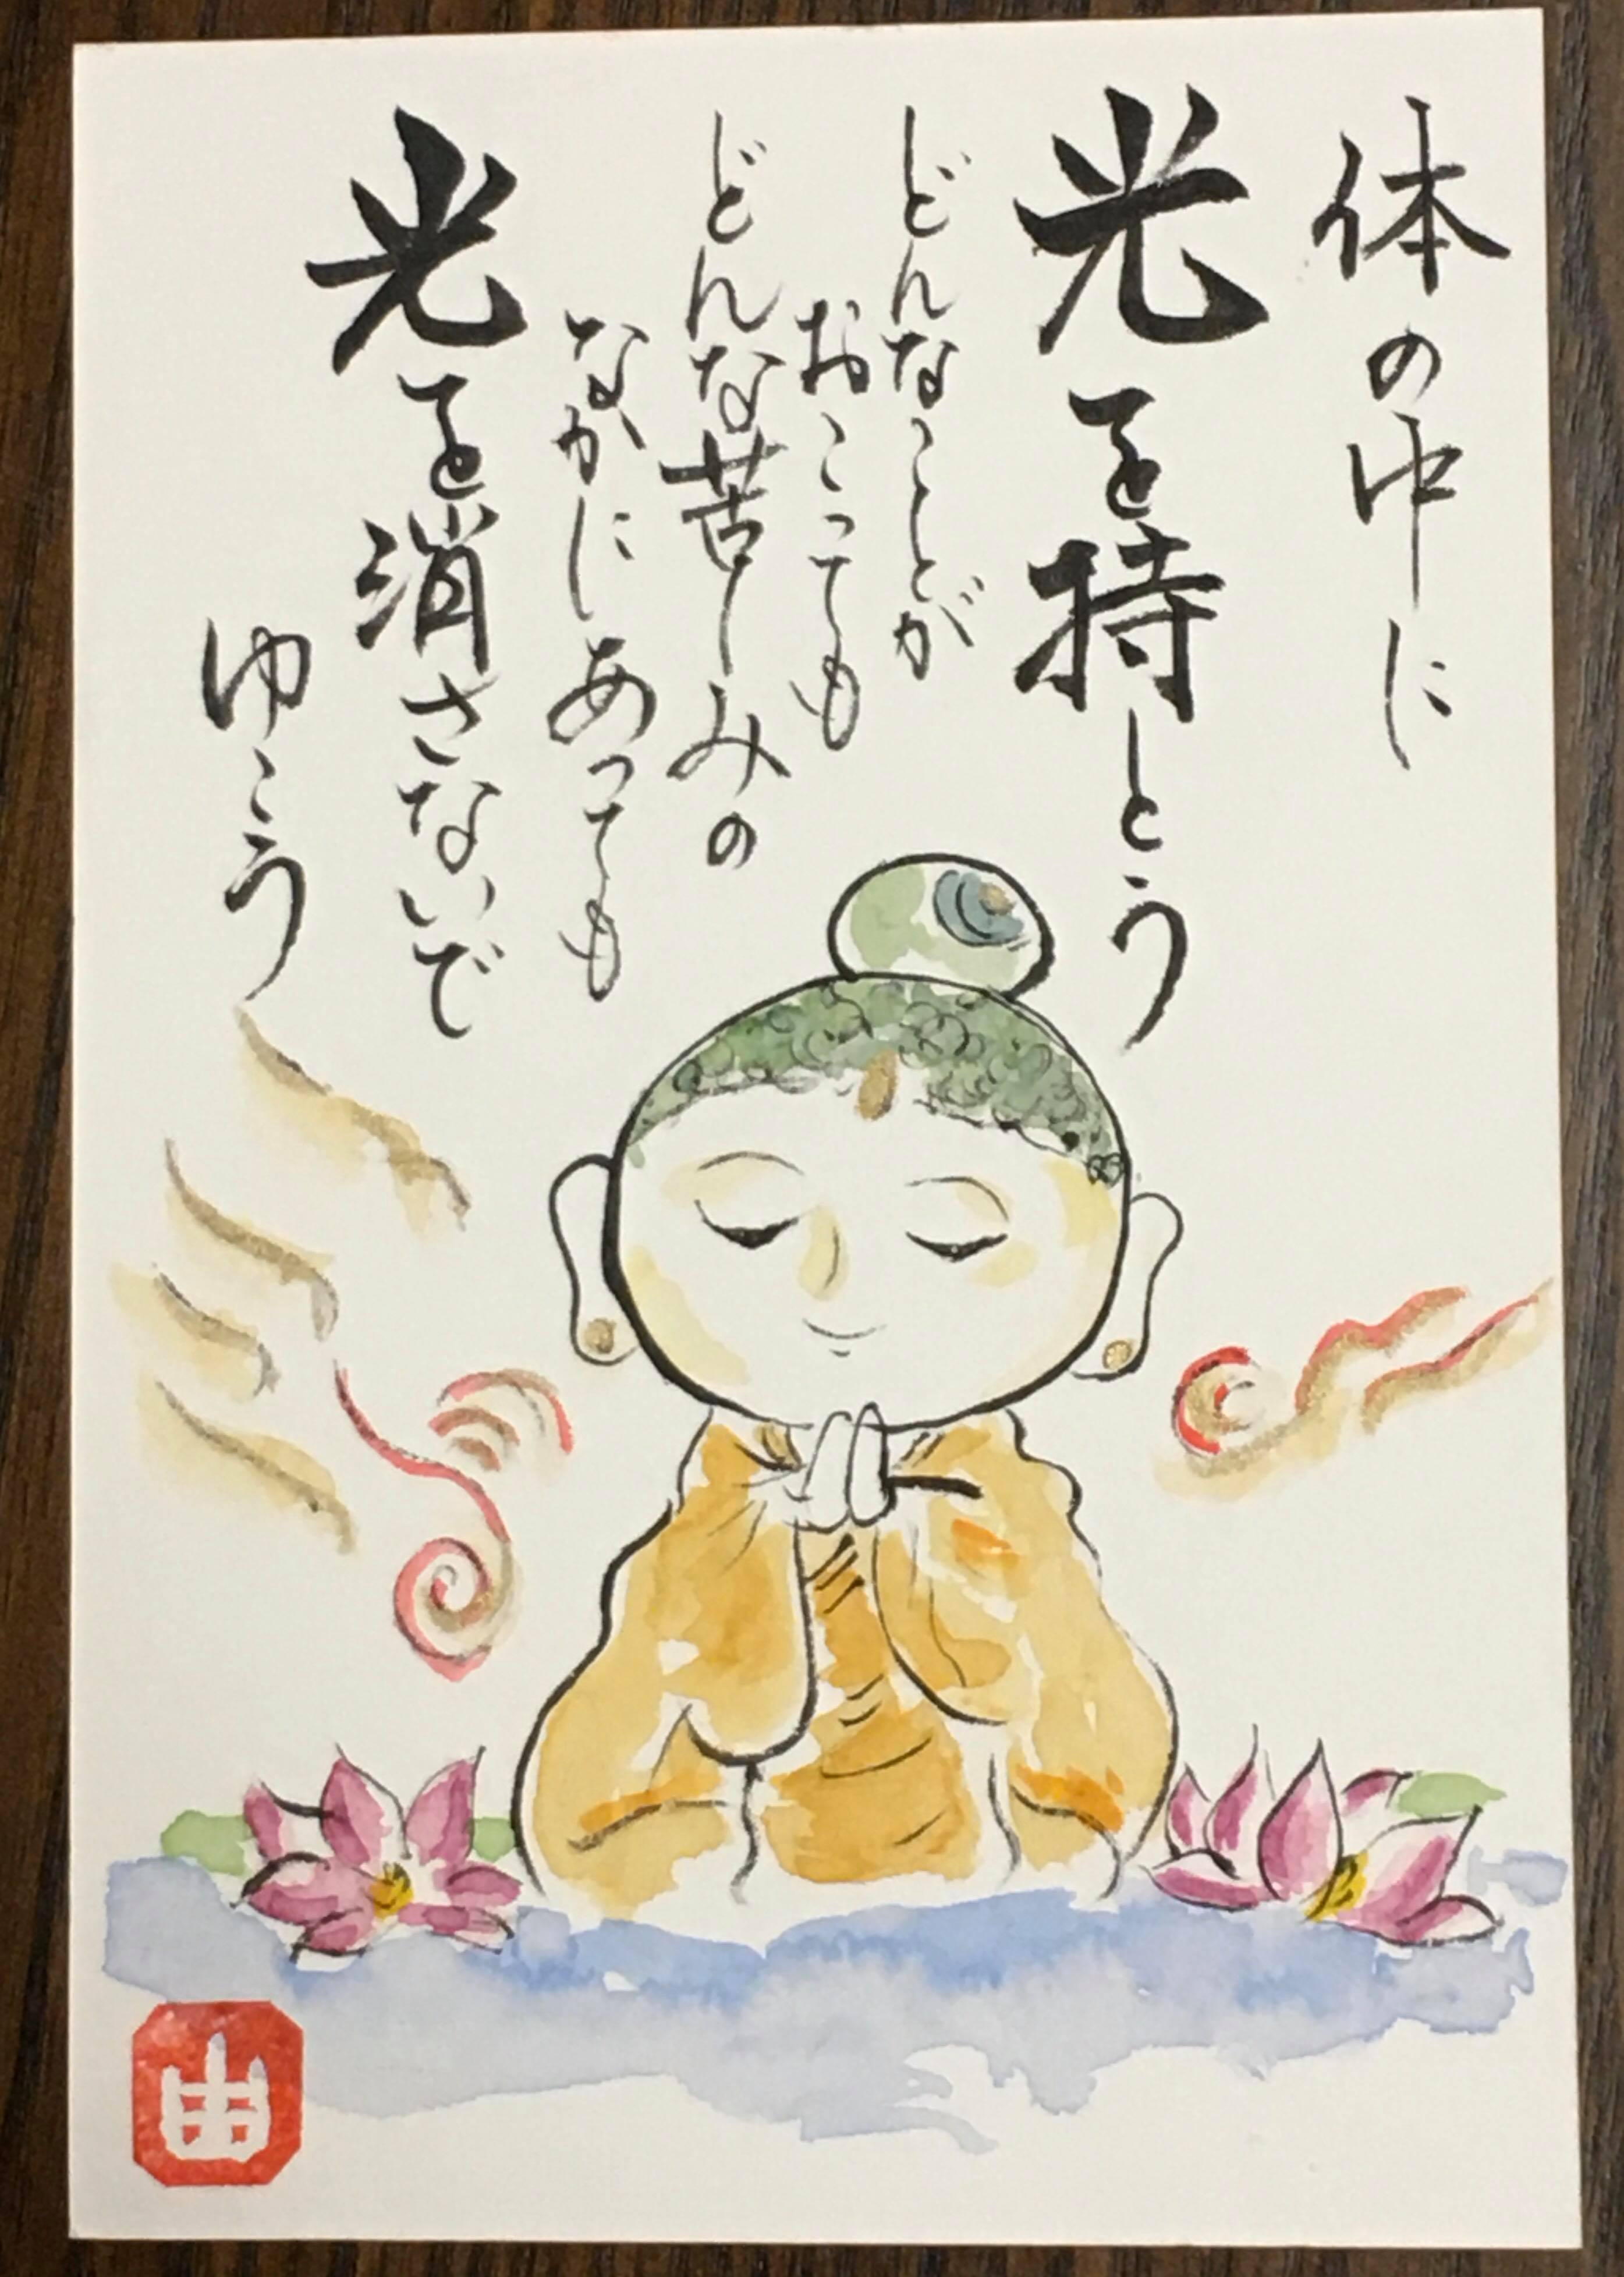 体の中に
光を持とう
どんなことが
おこっても
どんな苦しみの
なかにあっても
光を消さないで
ゆこう
由